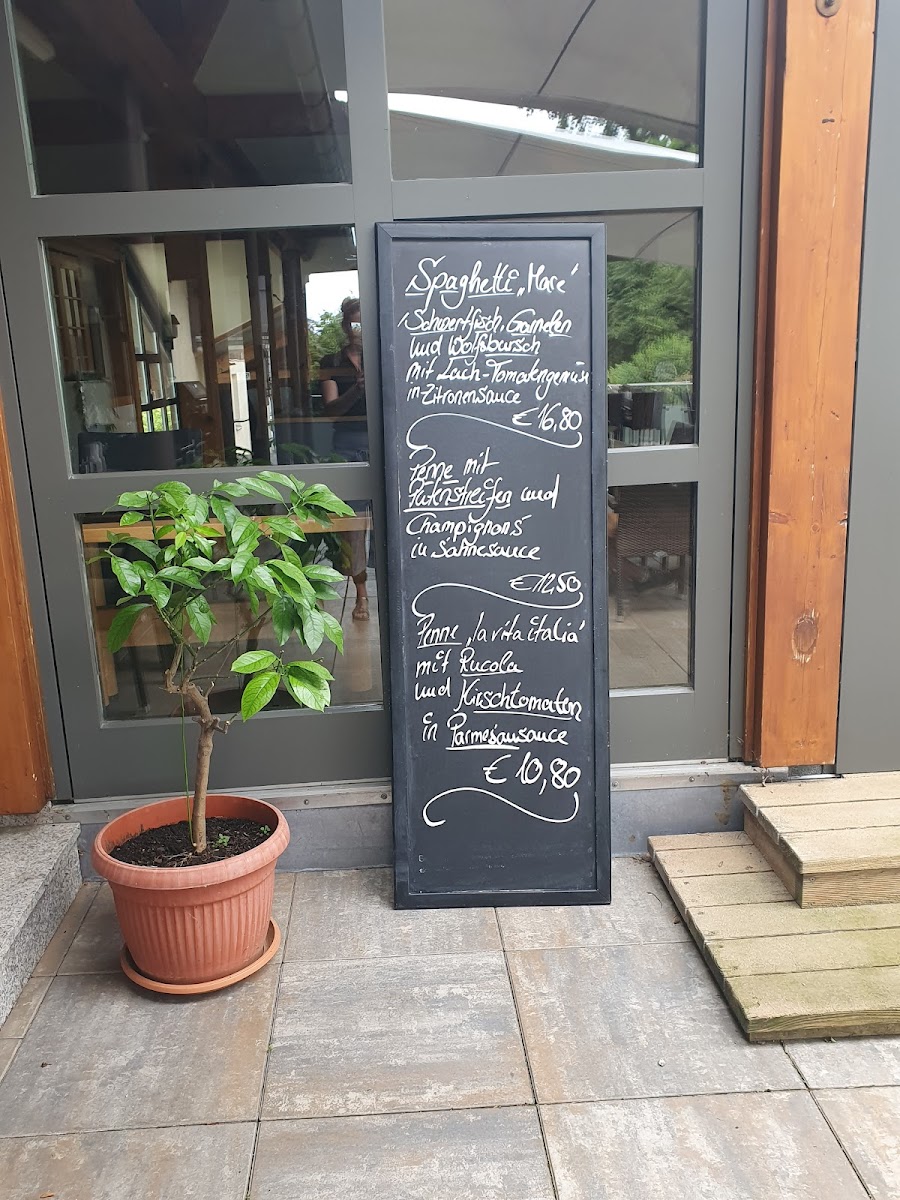 Spaghetti „Mare"
Schwertfisch, Garnelen
und Wolfsbarsch
mit Lauch-Tomatengemüse
in Zitronensauce
€ 16,80
Penne mit
Putenstreifen und
Champignons
in Sahnesauce
€ 12,50
Penne „la vita italia"
mit Rucola
und Kirschtomaten
in Parmesansauce
€ 10,80